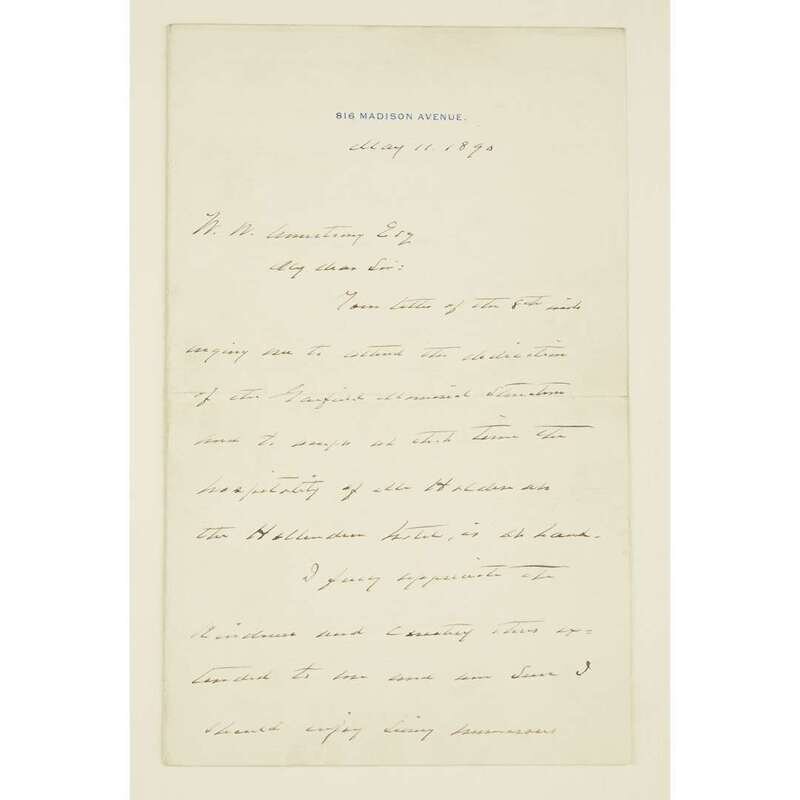 816 MADISON AVENUE.
May 11. 1890
W. W. Armstrong Esq
My dear Sir:
Your letter of the 8th inst
urging me to attend the dedication
of the Garfield Memorial Structure
and to accept at that time the
hospitality of Mr Holden at
the Hollenden hotel, is at hand.
I fully appreciate the
kindness and courtesy thus ex=
tended to me and am sure I
should enjoy being